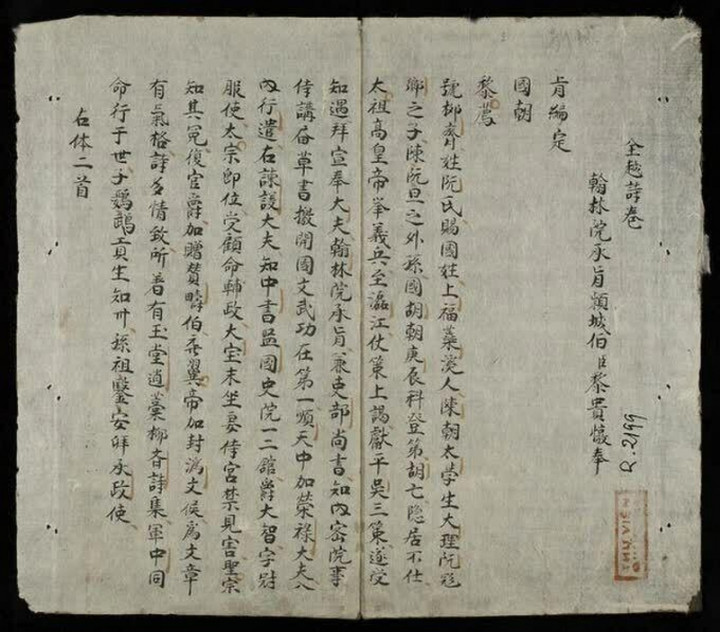 全越詩卷
翰林院承旨穎城伯臣黎貴懷奉
旨編定
國朝
黎廌
號抑齋姓阮氏賜國姓上福蘂溪人陳朝太學生大理阮飛
卿之子陳阮旦之外孫國胡朝庚辰科登第胡亡隱居不仕
太祖高皇帝舉義兵至瀘江仗策上謁獻平吳三策遂受
知遇拜宣奉大夫翰林院承旨兼吏部尚書知內密院事
侍講居草書撥開國文武功在第一順天中加榮祿大夫入
內行遣右諫議大夫知中書監國史院一二舘爵大智字尉
服使太宗即位受顧命輔政大宝末坐妾侍宮禁見害聖宗
知其冤復官爵加贈賛疇伯至翼帝加封濟文侯爲文章
有氣格詩多情致所著有玉堂遺藁柳齋詩集軍中同
命行于世子鸚鵡貢生知州孫祖鑒安拜承政使
古体二首
R.2199
THƯ VIỆN